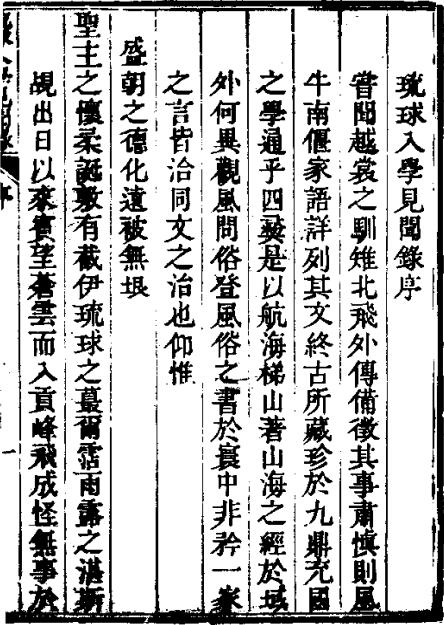 琉球入學見聞錄序
嘗聞越裳之馴雉北飛外傳備徵其事肅慎則風
牛南偃家語詳列其文終古所藏珍於九鼎充國
之學通乎四裔是以航海梯山著山海之經於域
外何異觀風問俗登風俗之書於寰中非矜一家
之言皆洽同文之治也仰惟
盛朝之德化遠被無垠
聖主之懷柔誕敷有截伊琉球之蕞爾霑雨露之湛斯
覘出日以來賓望蒼雲而入貢峰飛成怪無事於
序
一